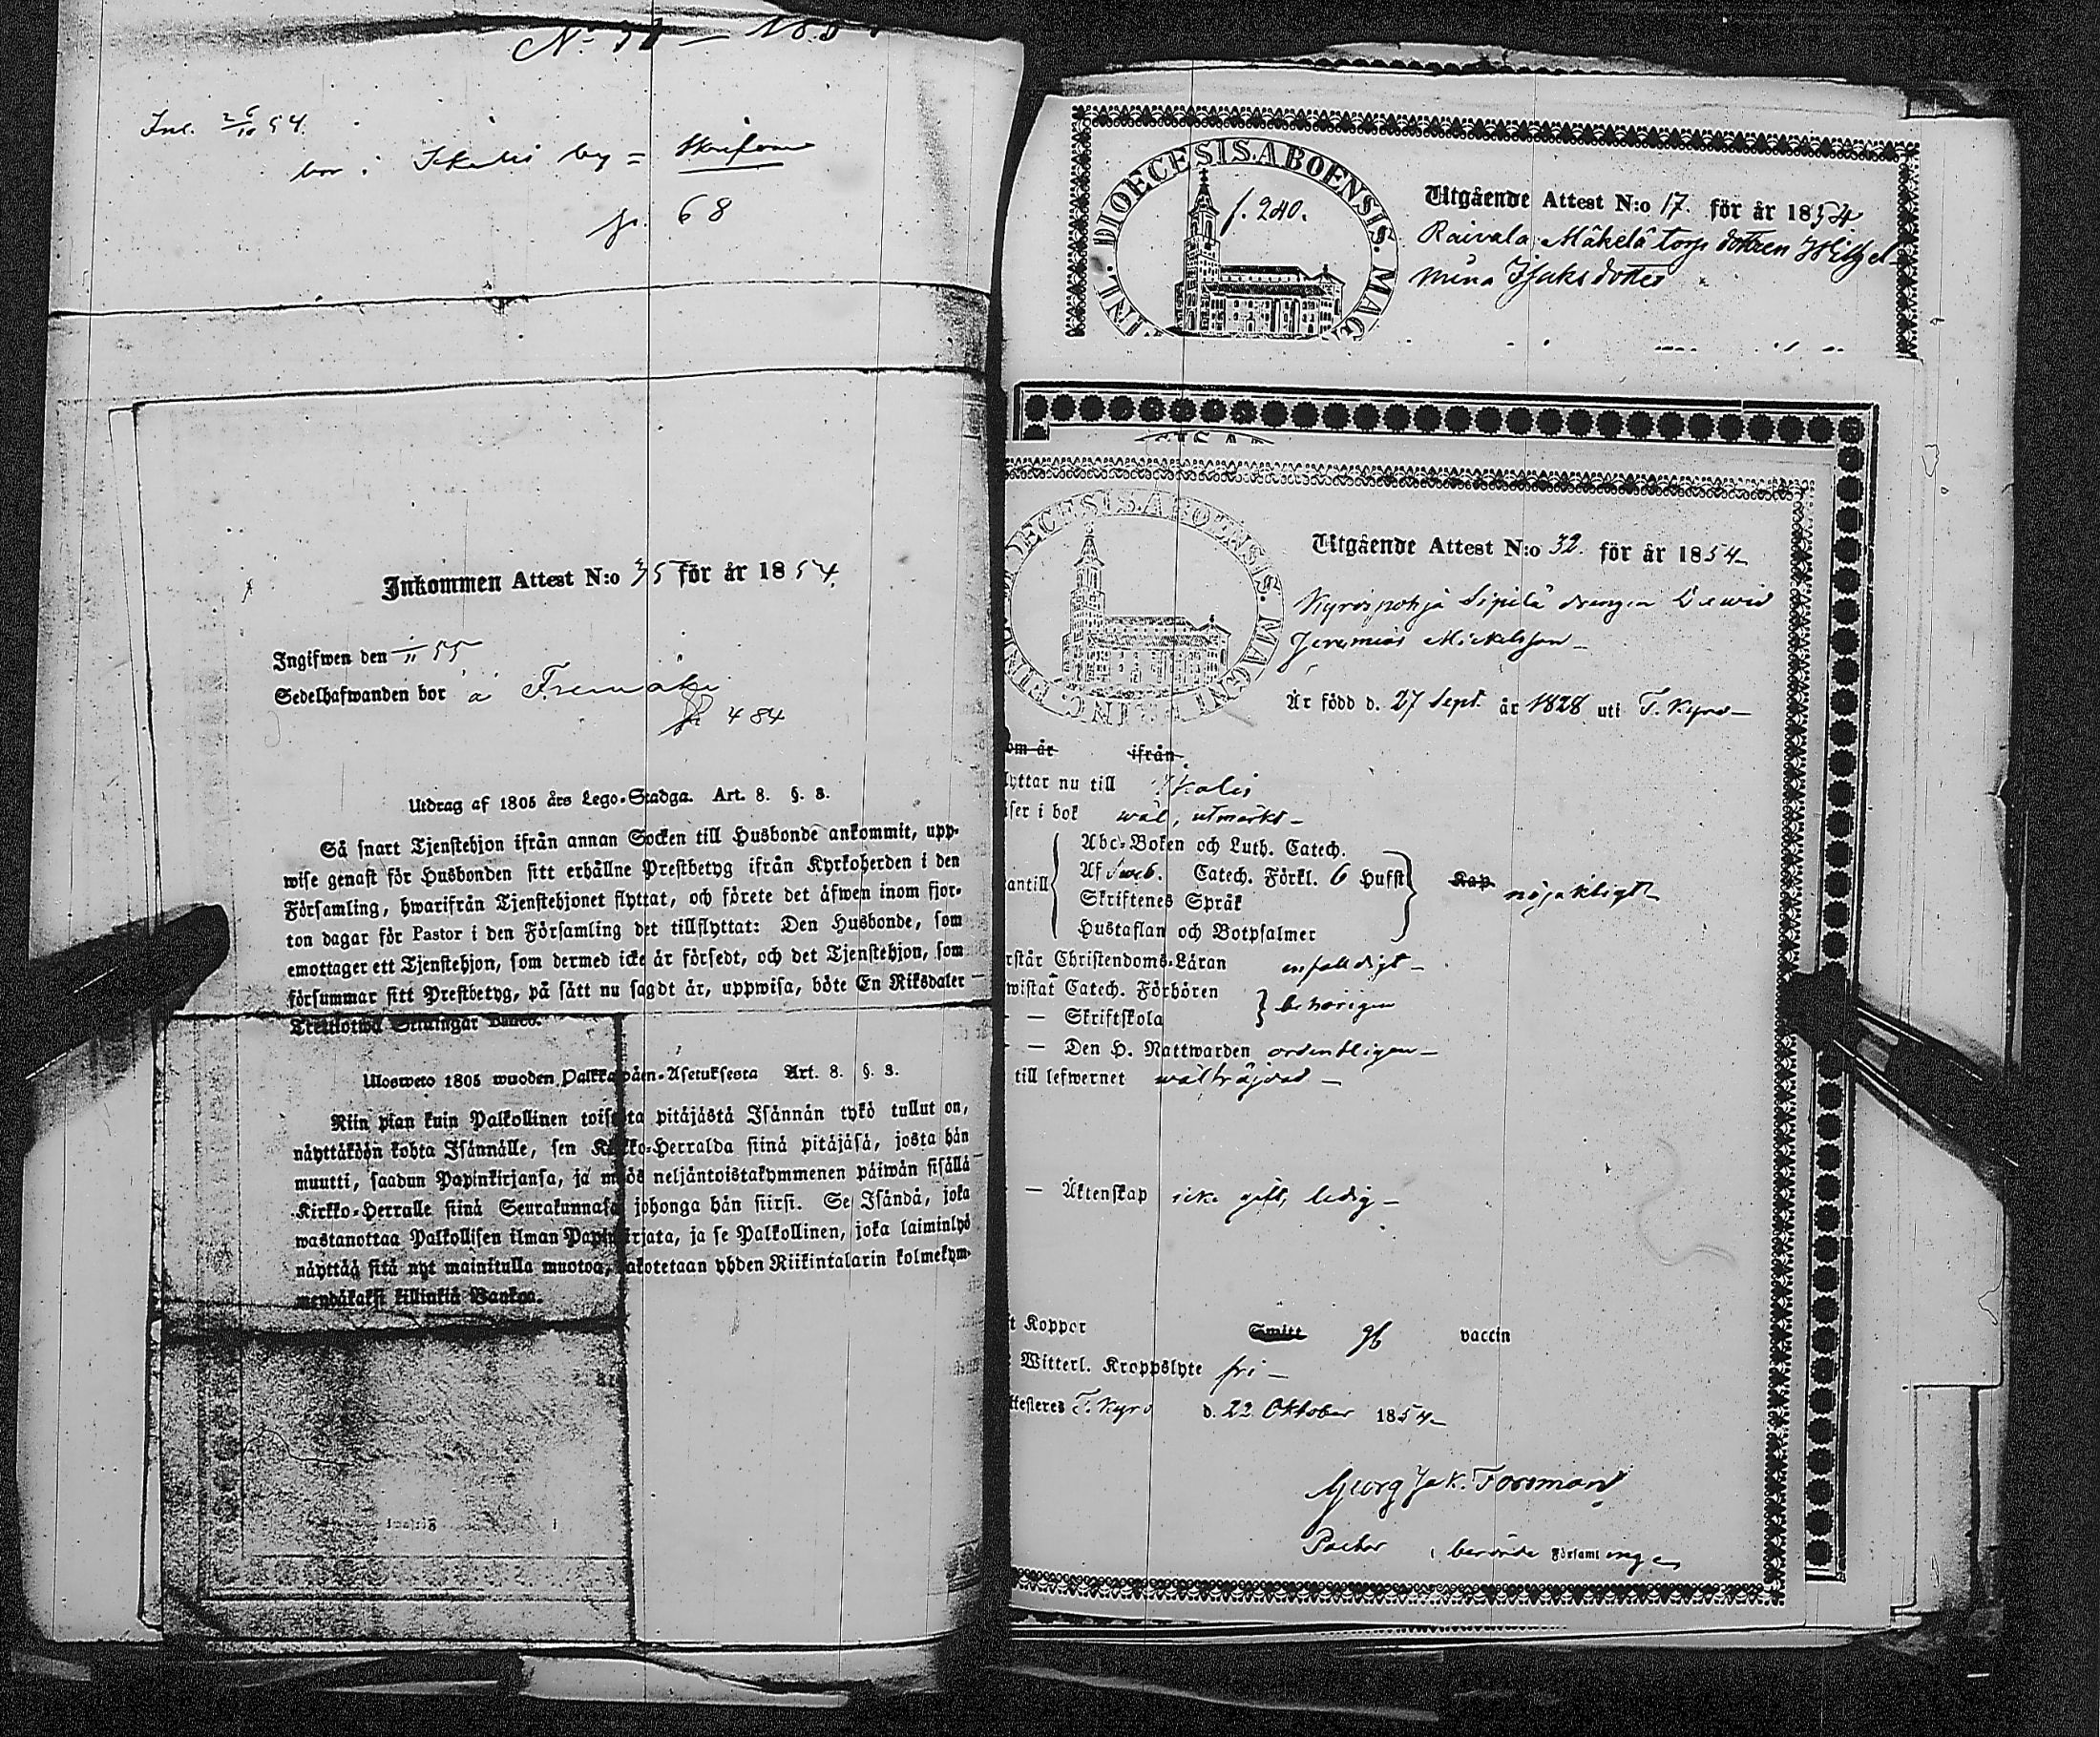 Ink. 26/10 54.
bor i Ikalis by =
p. 68
Inkommen Attest N:o 35 för år 1854.
Ingifwen den 1/11 55
Sedelhafwanden bor å
p. 484
Utdrag af 1805 års Lego-Stadga. Art. 8. §. 8.
Så snart Tjenstehjon ifrån annan Socken till Husbonde ankommit, upp-
wise genast för Husbonden sitt erhållne Prestbetyg ifrån Kyrkoherden i den
Församling, hwarifrån Tjenstehjonet flyttat, och förete det äfwen inom fjor-
ton dagar för Pastor i den Församling det tillflyttat: Den Husbonde, som
emottager ett Tjenstehjon, som dermed icke är försedt, och det Tjenstehjon, som
försummar sitt Prestbetyg, på sätt nu sagdt är, uppwisa, böte En Riksdaler
Trettiotwå Skillingar Banco.
Ulosweto 1805 wuoden Palkkawäen-Asetuksesta Art. 8. §. 8.
Niin pian kuin Palkollinen toisesta pitäjästä Isännän tykö tullut on,
näyttäköön kohta Isännälle, sen Kirkko-Herralda siinä pitäjäsä, josta hän
muutti, saadun Papinkirjansa, ja myös neljäntoistakymmenen päiwän sisällä
Kirkko-Herralle siinä Seurakunnasa johonga hän siirsi. Se Isändä, joka
wastanottaa Palkollisen ilman Papinkirjata, ja se Palkollinen, joka laiminlyö
näyttää sitä nyt mainitulla muotoa, sakotetaan yhden Riikintalarin kolmekym-
mendäkaksi killinkiä Bankoa.
DIOECESIS. ABOENSIS. MAG
f. 240.
Utgående Attest N:o 17. för år 1854
Raivala Mäkelä torp dottren Wilhel-
mina Isaksdotter
ECESIS. ABOENSIS. MAGNI
Utgående Attest N:o 32. för år 1854
Kyröspohja Sipilä drengen Dawid
Jeremias Mickelsson
Är född d. 27 Sept. år 1828 uti T. Kyro
om år ifrån
lyttar nu till Ikalis
äser i bok wäl, utmärkt
Abc-Boken och Luth. Catech.
antill Af Sweb. Catech. Förkl. 6 Hufst Kap nöjaktigt
Skriftenes Språk
Hustaflan och Botpsalmer
rstår Christendoms-Läran enfaldigt
wistat Catech. Förhören
— Skriftskola behörigen
— Den H. Nattwarden ordentligen
till lefwernet wälfräjdad
— Äktenskap icke gift, ledig
t Kopper Smitt gb vaccin
Witterl. Kroppslyte fri
ttesteres T. Kyro d. 22 Oktober 1854
Georg Jak. Forsman
Pastor i berörde Församlingen